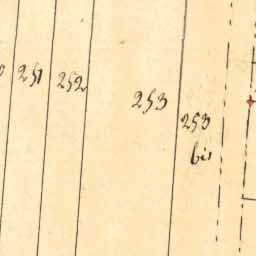 251
252
253
253
bis